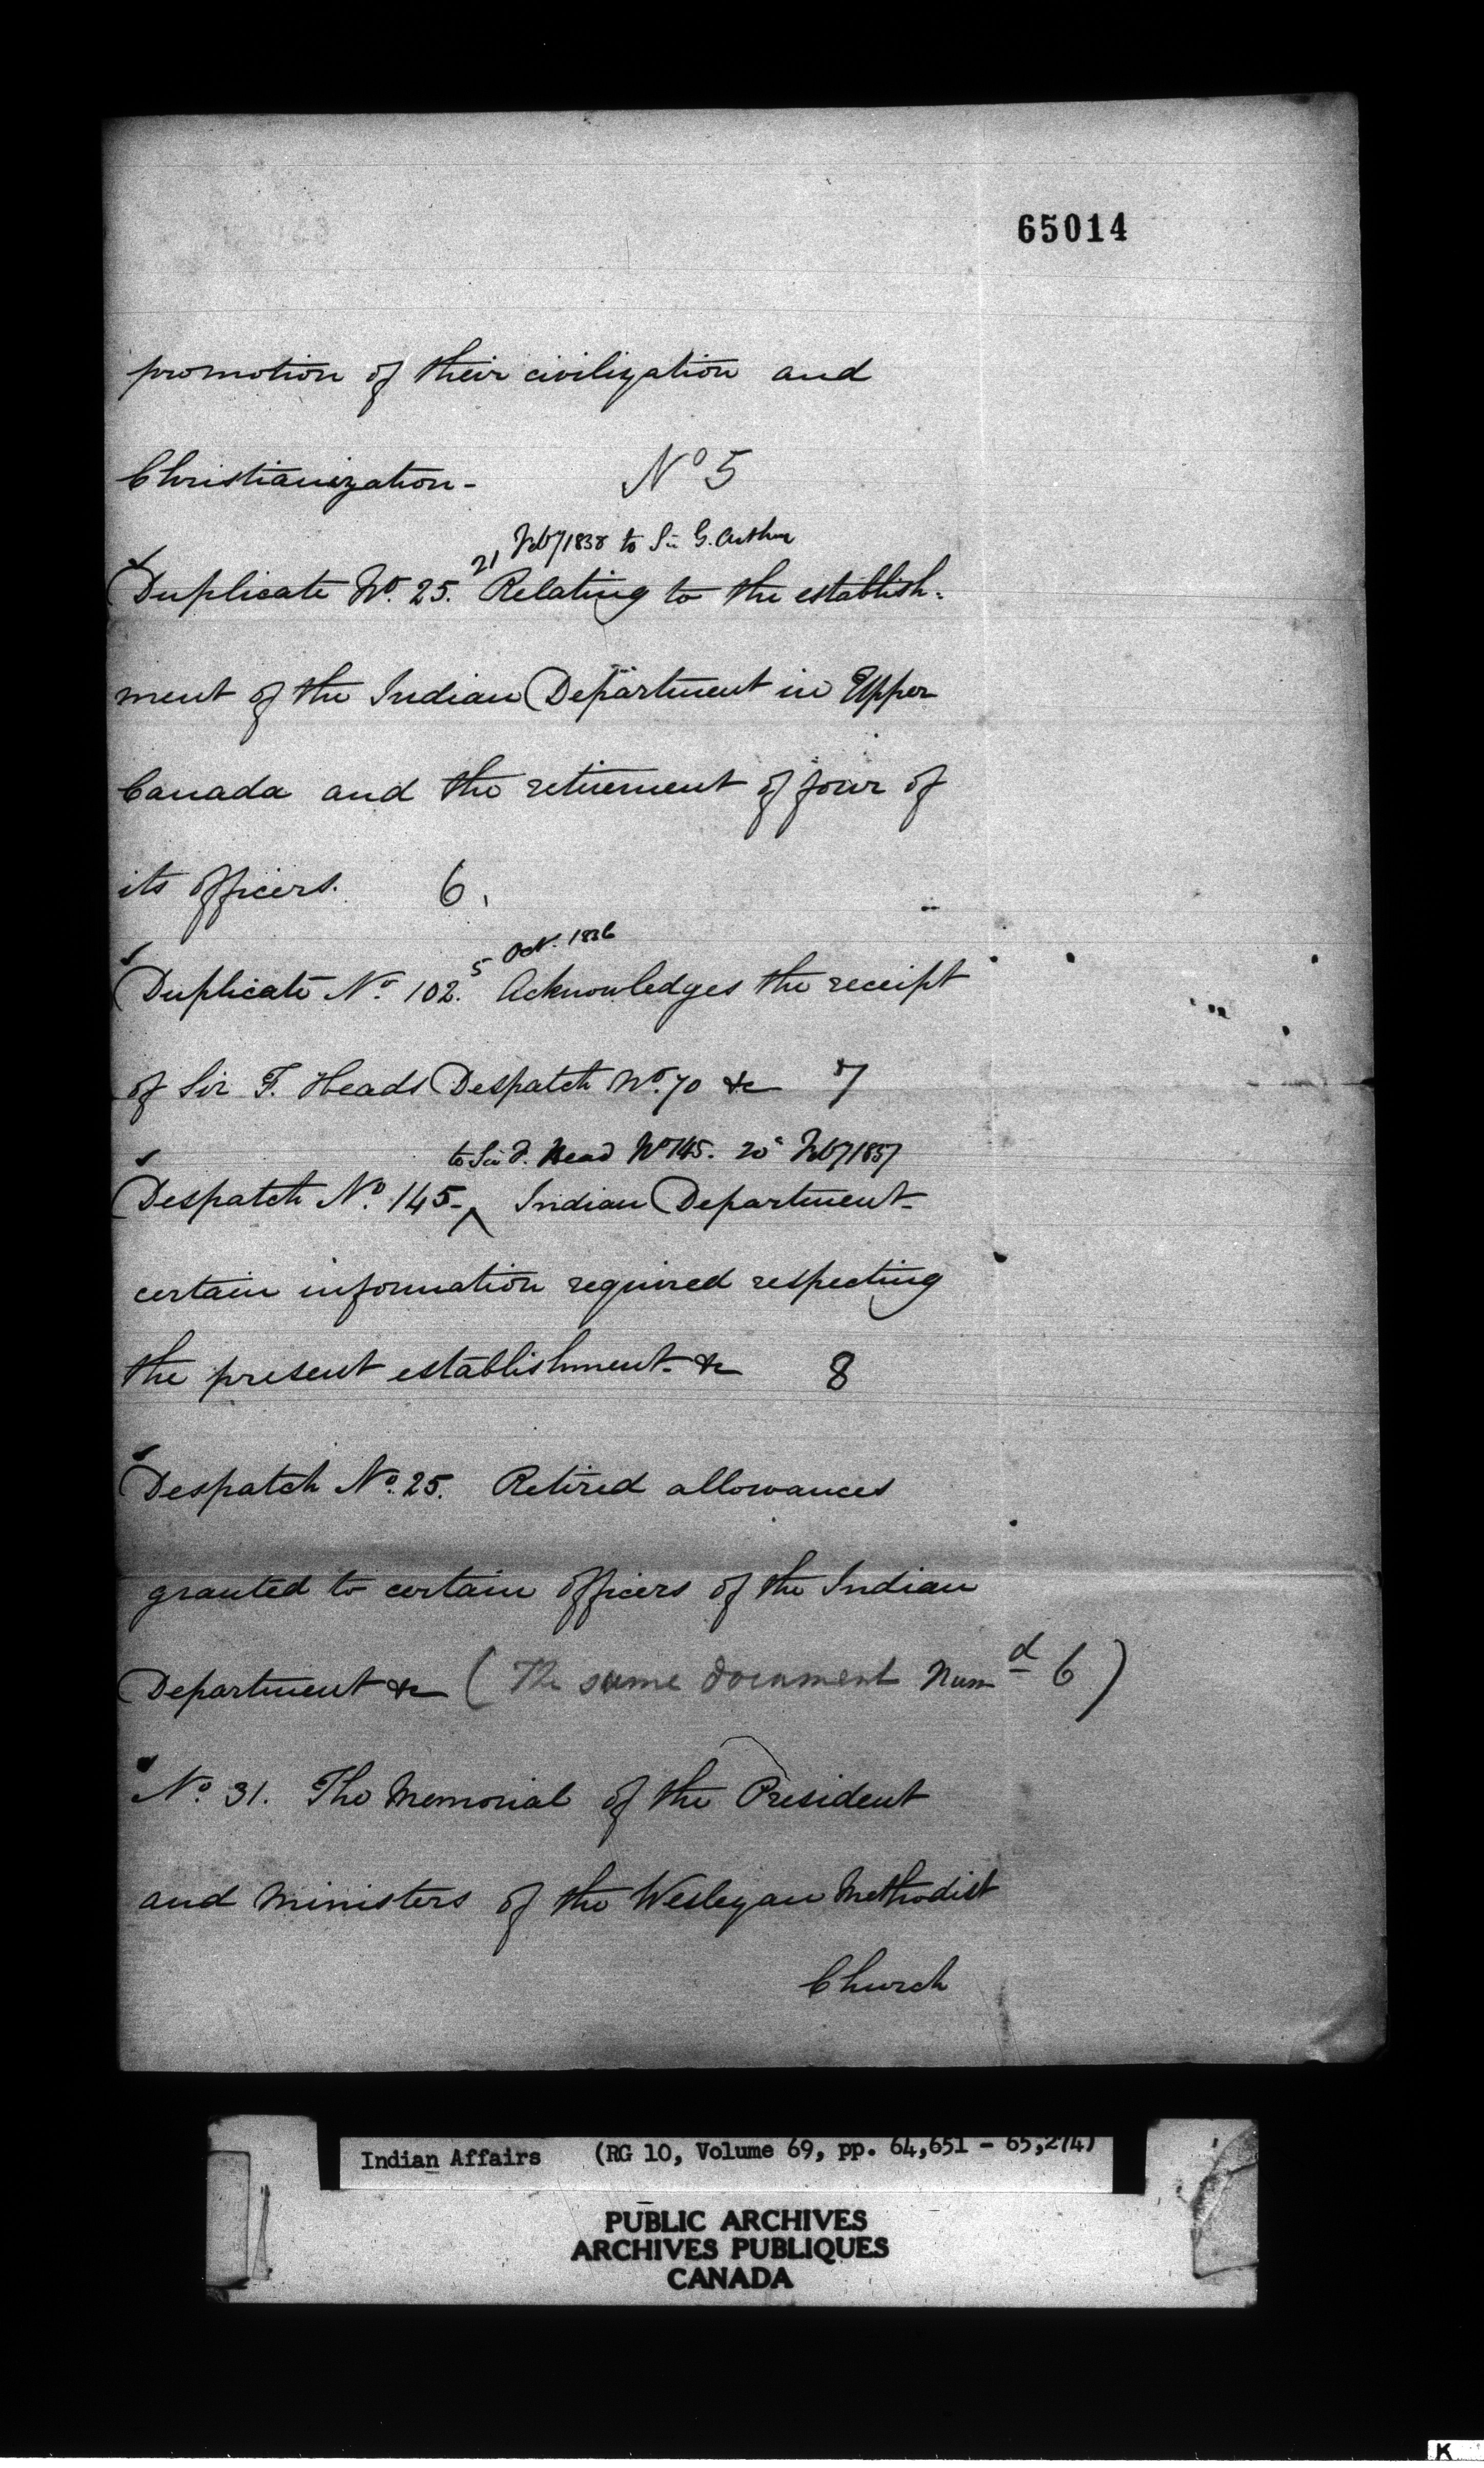 65014
promotion of their civilization and
Christianization - No 5
21 Feby 1838 to Sir G. Arthur
Duplicate No. 25. Relating to the establish-
ment of the Indian Department in Upper
Canada and the retirement of four of
its officers. 6.
5 Oct. 1836
Duplicate No. 102. Acknowledges the receipt
of Sir F. Heads Despatch No. 70 &c 7
to Sir F. Head No 145. 20 Feby 1837
Despatch No. 145 - ^ Indian Department -
certain information required respecting
the present establishment - &c 8
Despatch No. 25. Retired allowances
granted to certain officers of the Indian
Department &c (The same document Numd 6)
No. 31. The Memorial of the President
and Ministers of the Wesleyan Methodist
Church
Indian Affairs (RG 10, Volume 69, pp. 64,651 - 65,274)
PUBLIC ARCHIVES
ARCHIVES PUBLIQUES
CANADA
K